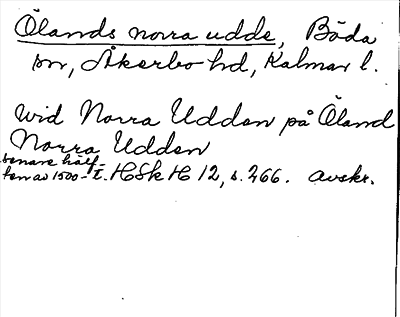 Ölands norra udde, Böda
sn, Åkerbo hd, Kalmar l.
wid Norra Udden på Öland
Norra Udden
senare hälf-
ten av 1500-t. HSkH 12, s. 266. avskr.